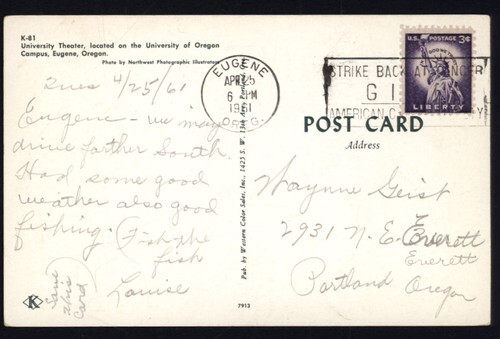 K-81
University Theater, located on the University of Oregon
Campus, Eugene, Oregon.
Photo by Northwest Photographic Illustrators
Tues 4/25/61
Eugene - we may
drive farther South.
Had some good
weather also good
fishing. (Fish the
fish
Louise
Save
this
Card
K
7913
Pub. by Western Color Sales, Inc., 1425 S. W. 13th Ave. Portland
EUGENE
APR 25
6 PM
1961
OREG.
STRIKE BACK AT CANCER
GI
AMERICAN C
U.S. POSTAGE 3¢
IN GOD WE TRUST
LIBERTY
POST CARD
Address
Waynne Geist
2931 N. E. Everett
Everett
Portland Oregon